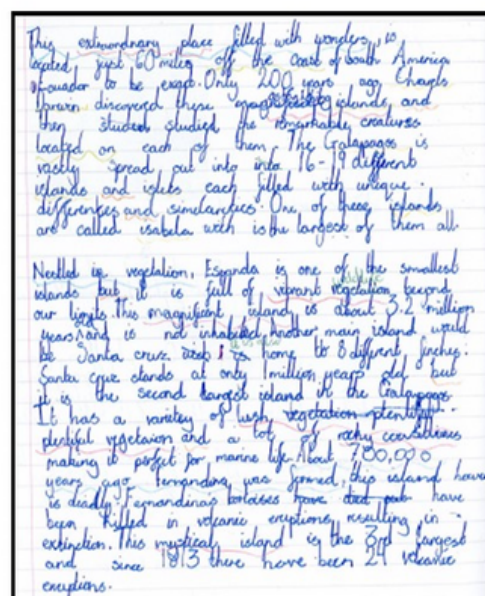 This extraordinary place filled with wonders, is
located just 60 miles off the coast of South America
Ecuador to be exact. Only 200 years ago Charels
Darwin discovered these islands, and
then studied studied the remarkable creatures
located on each of them. The Galapagos is
vastly spread out into into 16-19 different
islands and islets each filled with uneque
differences and simelareties. One of these islands
are called isabela wich is the largest of them all.
Nestled in vegetation, Espanda is one of the smallest
islands but it is full of vibrant vegetation beyond
our limits. This magnificant island is about 3.2 million
years old and is not inhabeted. Another main island would
be Santa cruz is home to 8 different finches.
Santa cruz stands at only 1 million years old but
it is the second largest island in the Galapagos.
It has a variety of lush vegetation plentifull
plentiful vegetaion and a lot of rocky coastlines
making it perfect for marine life. About 700,000
years ago Fernandina was formed, this island howe
is deadly. Fernandinas tortoises have died out have
been killed in volcanic eruptions resulting in
extinction. This mystical island is the 3rd largest
and since 1813 there have been 24 volcanic
eruptions.